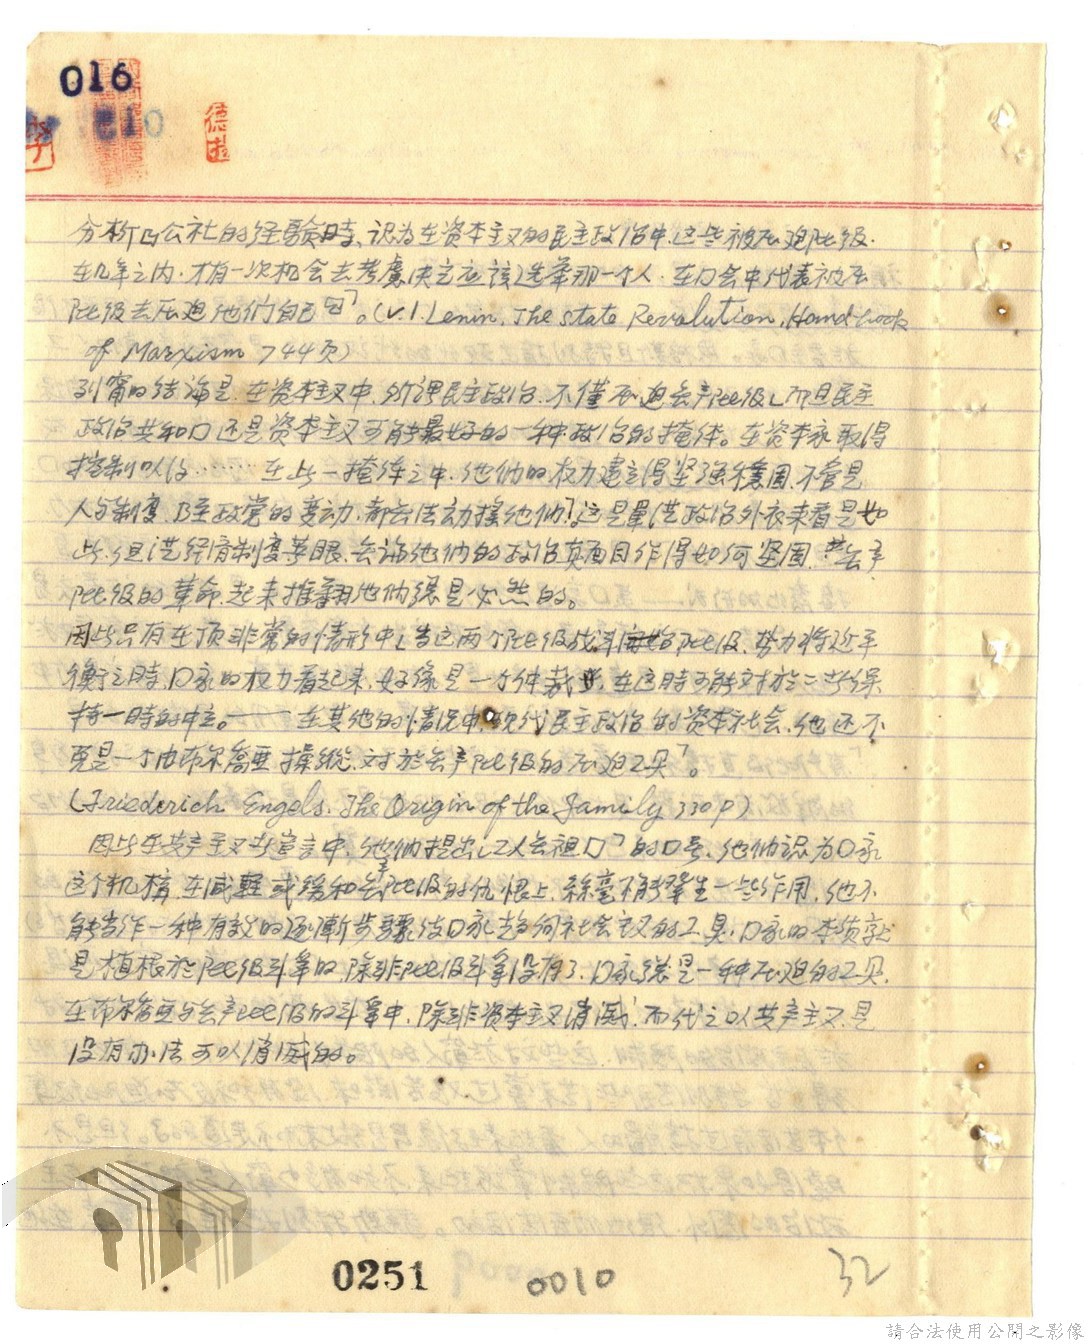 016
010
李
德
分析巴公社的经驗時、识为在资本主义的民主政治中.这些被压迫阶级.
在几年之内.才有一次机会去考慮决定应该选举那一个人.在口会中代表被压
阶级去压迫他们自己"。(V.I.Lenin, The state Revolution, Hand-book
of Marxism 744页)
列甯的结論是.在资本主义中.所谓民主政治.不僅压迫无产阶级「而且民主
政治共和口还是资本主义可能最好的一种政治的掩体。在资本家取得
控制以后………在此一掩体之中.他们的权力建立得坚强穩固.不管是
人与制度.乃至政党的变动.都无法动摇他们」这是單從政治外衣来看是如
此.但從经濟制度着眼.无論他们的政治真面目作得如何坚固.无产
阶级的革命.起来推翻他们缘是必然的。
因此只有在顶非常的情形中「当这两个阶级战斗阶级.势力将近平
衡之時.口家的权力看起来.好像是一个仲裁.在这時可能对於二些保
持一時的中立。——在其他的情况中.现代民主政治的资本社会.他还不
更是一个由布尔喬亜操縱.对於无产阶级的压迫工具」。
(Friederich Engels. The Origin of the Family 330p)
因此在共产主义者宣言中.他们提出「工人无祖口」的口号.他们识为口家
这个机構.在减輕或缓和无产阶级的仇恨上.絲毫不能發生一些作用.他不
能当作一种有效的逐漸步驟使口家趋向社会主义的工具.口家的本质就
是植根於阶级斗争的.除非阶级斗争没有了.口家缘是一种压迫的工具.
在布尔喬亜与无产阶级的斗争中.除非资本主义消滅.而代之以共产主义.是
没有办法可以消滅的。
0251
0010
32
請合法使用公開之影像